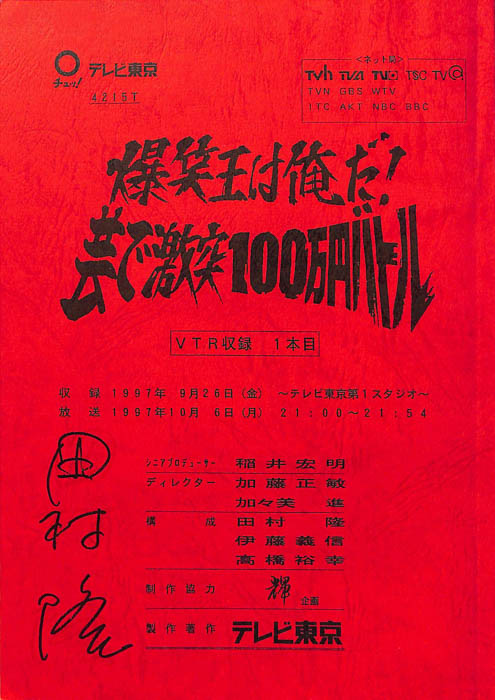 チュッ! テレビ東京
4215T
<ネット局>
TVh TVA TVO TSC TVQ
TVN GBS WTV
ITC AKT NBC BBC
爆笑王は俺だ!
芸で激突100万円バトル
VTR収録 1本目
収録 1997年 9月26日(金) ～テレビ東京第1スタジオ～
放送 1997年10月 6日(月) 21:00～21:54
シニアプロデューサー 稲井宏明
ディレクター 加藤正敏
加々美 進
構成 田村 隆
伊藤義信
高橋裕幸
制作協力 輝企画
製作著作 テレビ東京
田村隆